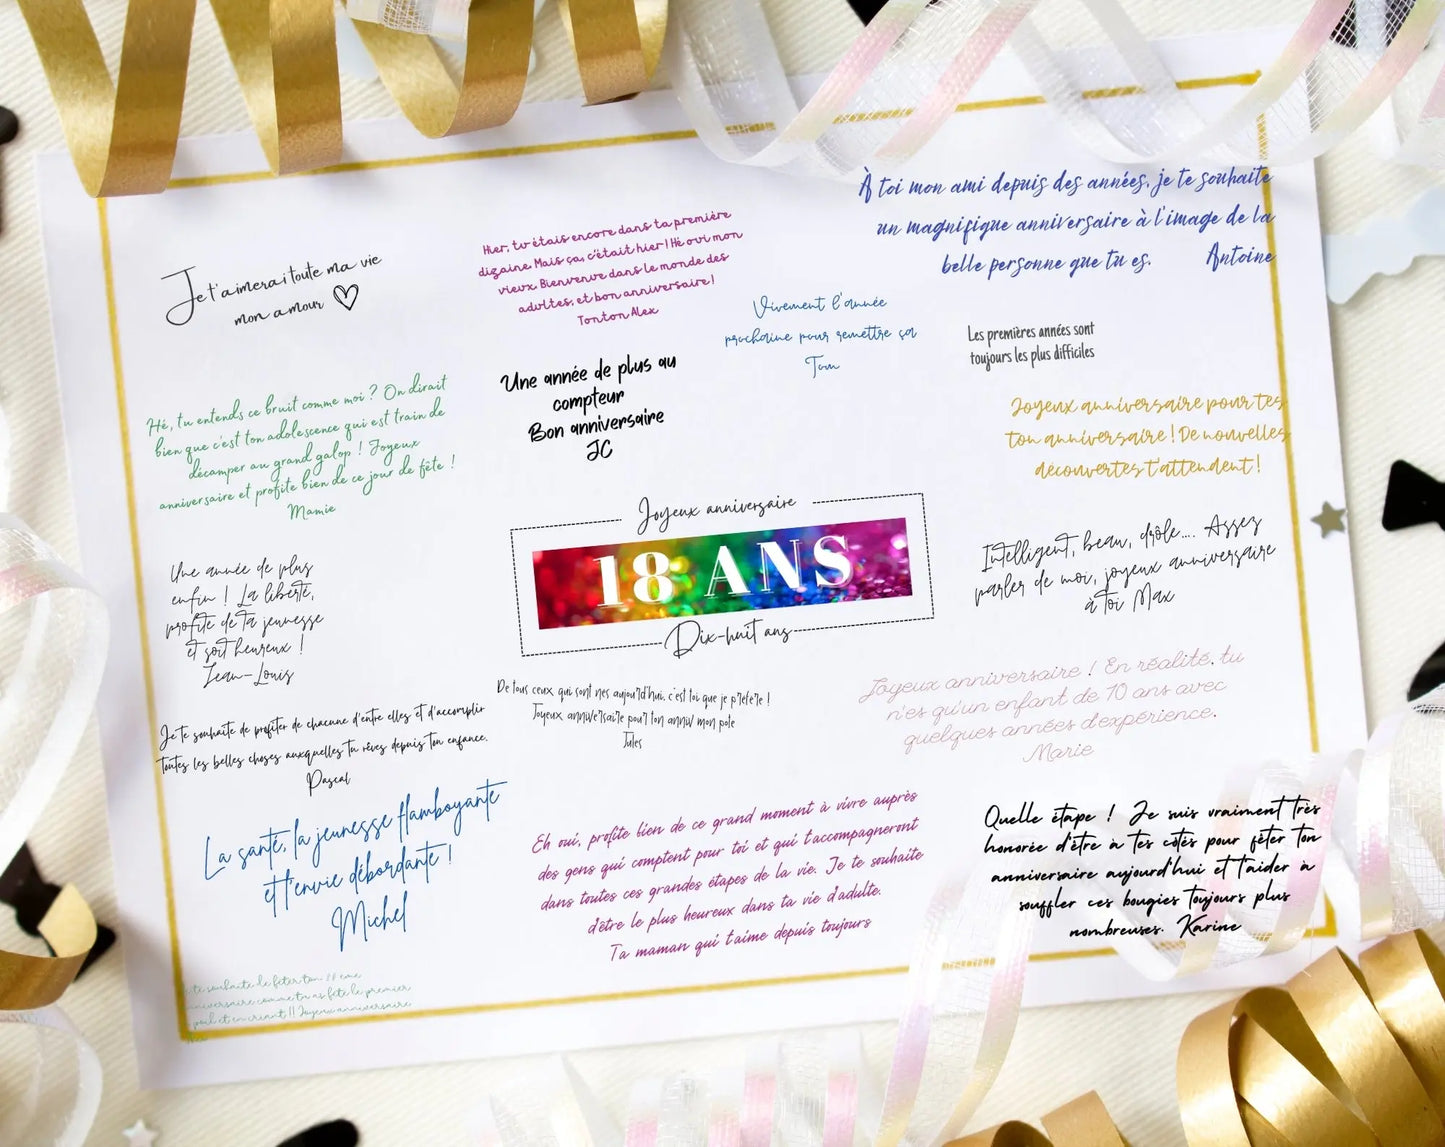 Je t'aimerai toute ma vie
mon amour
Hier, tu étais encore dans ta première
dizaine. Mais ça, c'était hier ! Hé oui mon
vieux. Bienvenue dans le monde des
adultes, et bon anniversaire !
Tonton Alex
À toi mon ami depuis des années, je te souhaite
un magnifique anniversaire à l'image de la
belle personne que tu es. Antoine
Vivement l'année
prochaine pour remettre ça
Tom
Les premières années sont
toujours les plus difficiles
Une année de plus au
compteur
Bon anniversaire
JC
Hé, tu entends ce bruit comme moi ? On dirait
bien que c'est ton adolescence qui est train de
décamper au grand galop ! Joyeux
anniversaire et profite bien de ce jour de fête !
Mamie
Joyeux anniversaire pour tes
ton anniversaire ! De nouvelles
découvertes t'attendent !
Joyeux anniversaire
18 ANS
Dix-huit ans
Intelligent, beau, drôle.... Assez
parler de moi, joyeux anniversaire
à toi Max
Une année de plus
enfin ! La liberté,
profite de ta jeunesse
et soit heureux !
Jean-Louis
De tous ceux, qui sont nés aujourd'hui, c'est toi que je préfère !
Joyeux anniversaire pour ton anniv mon pote
Jules
Joyeux anniversaire ! En réalité, tu
n'es qu'un enfant de 10 ans avec
quelques années d'expérience.
Marie
Je te souhaite de profiter de chacune d'entre elles et d'accomplir
toutes les belles choses auxquelles tu rêves depuis ton enfance.
Pascal
La santé, la jeunesse flamboyante
et l'envie débordante !
Michel
Eh oui, profite bien de ce grand moment à vivre auprès
des gens qui comptent pour toi et qui t'accompagneront
dans toutes ces grandes étapes de la vie. Je te souhaite
d'être le plus heureux dans ta vie d'adulte.
Ta maman qui t'aime depuis toujours
Quelle étape ! Je suis vraiment très
honorée d'être à tes côtés pour fêter ton
anniversaire aujourd'hui et t'aider à
souffler ces bougies toujours plus
nombreuses. Karine
te souhaite de fêter ton 18 ème
anniversaire comme tu as fêté le premier
poil et en criant !! Joyeux anniversaire